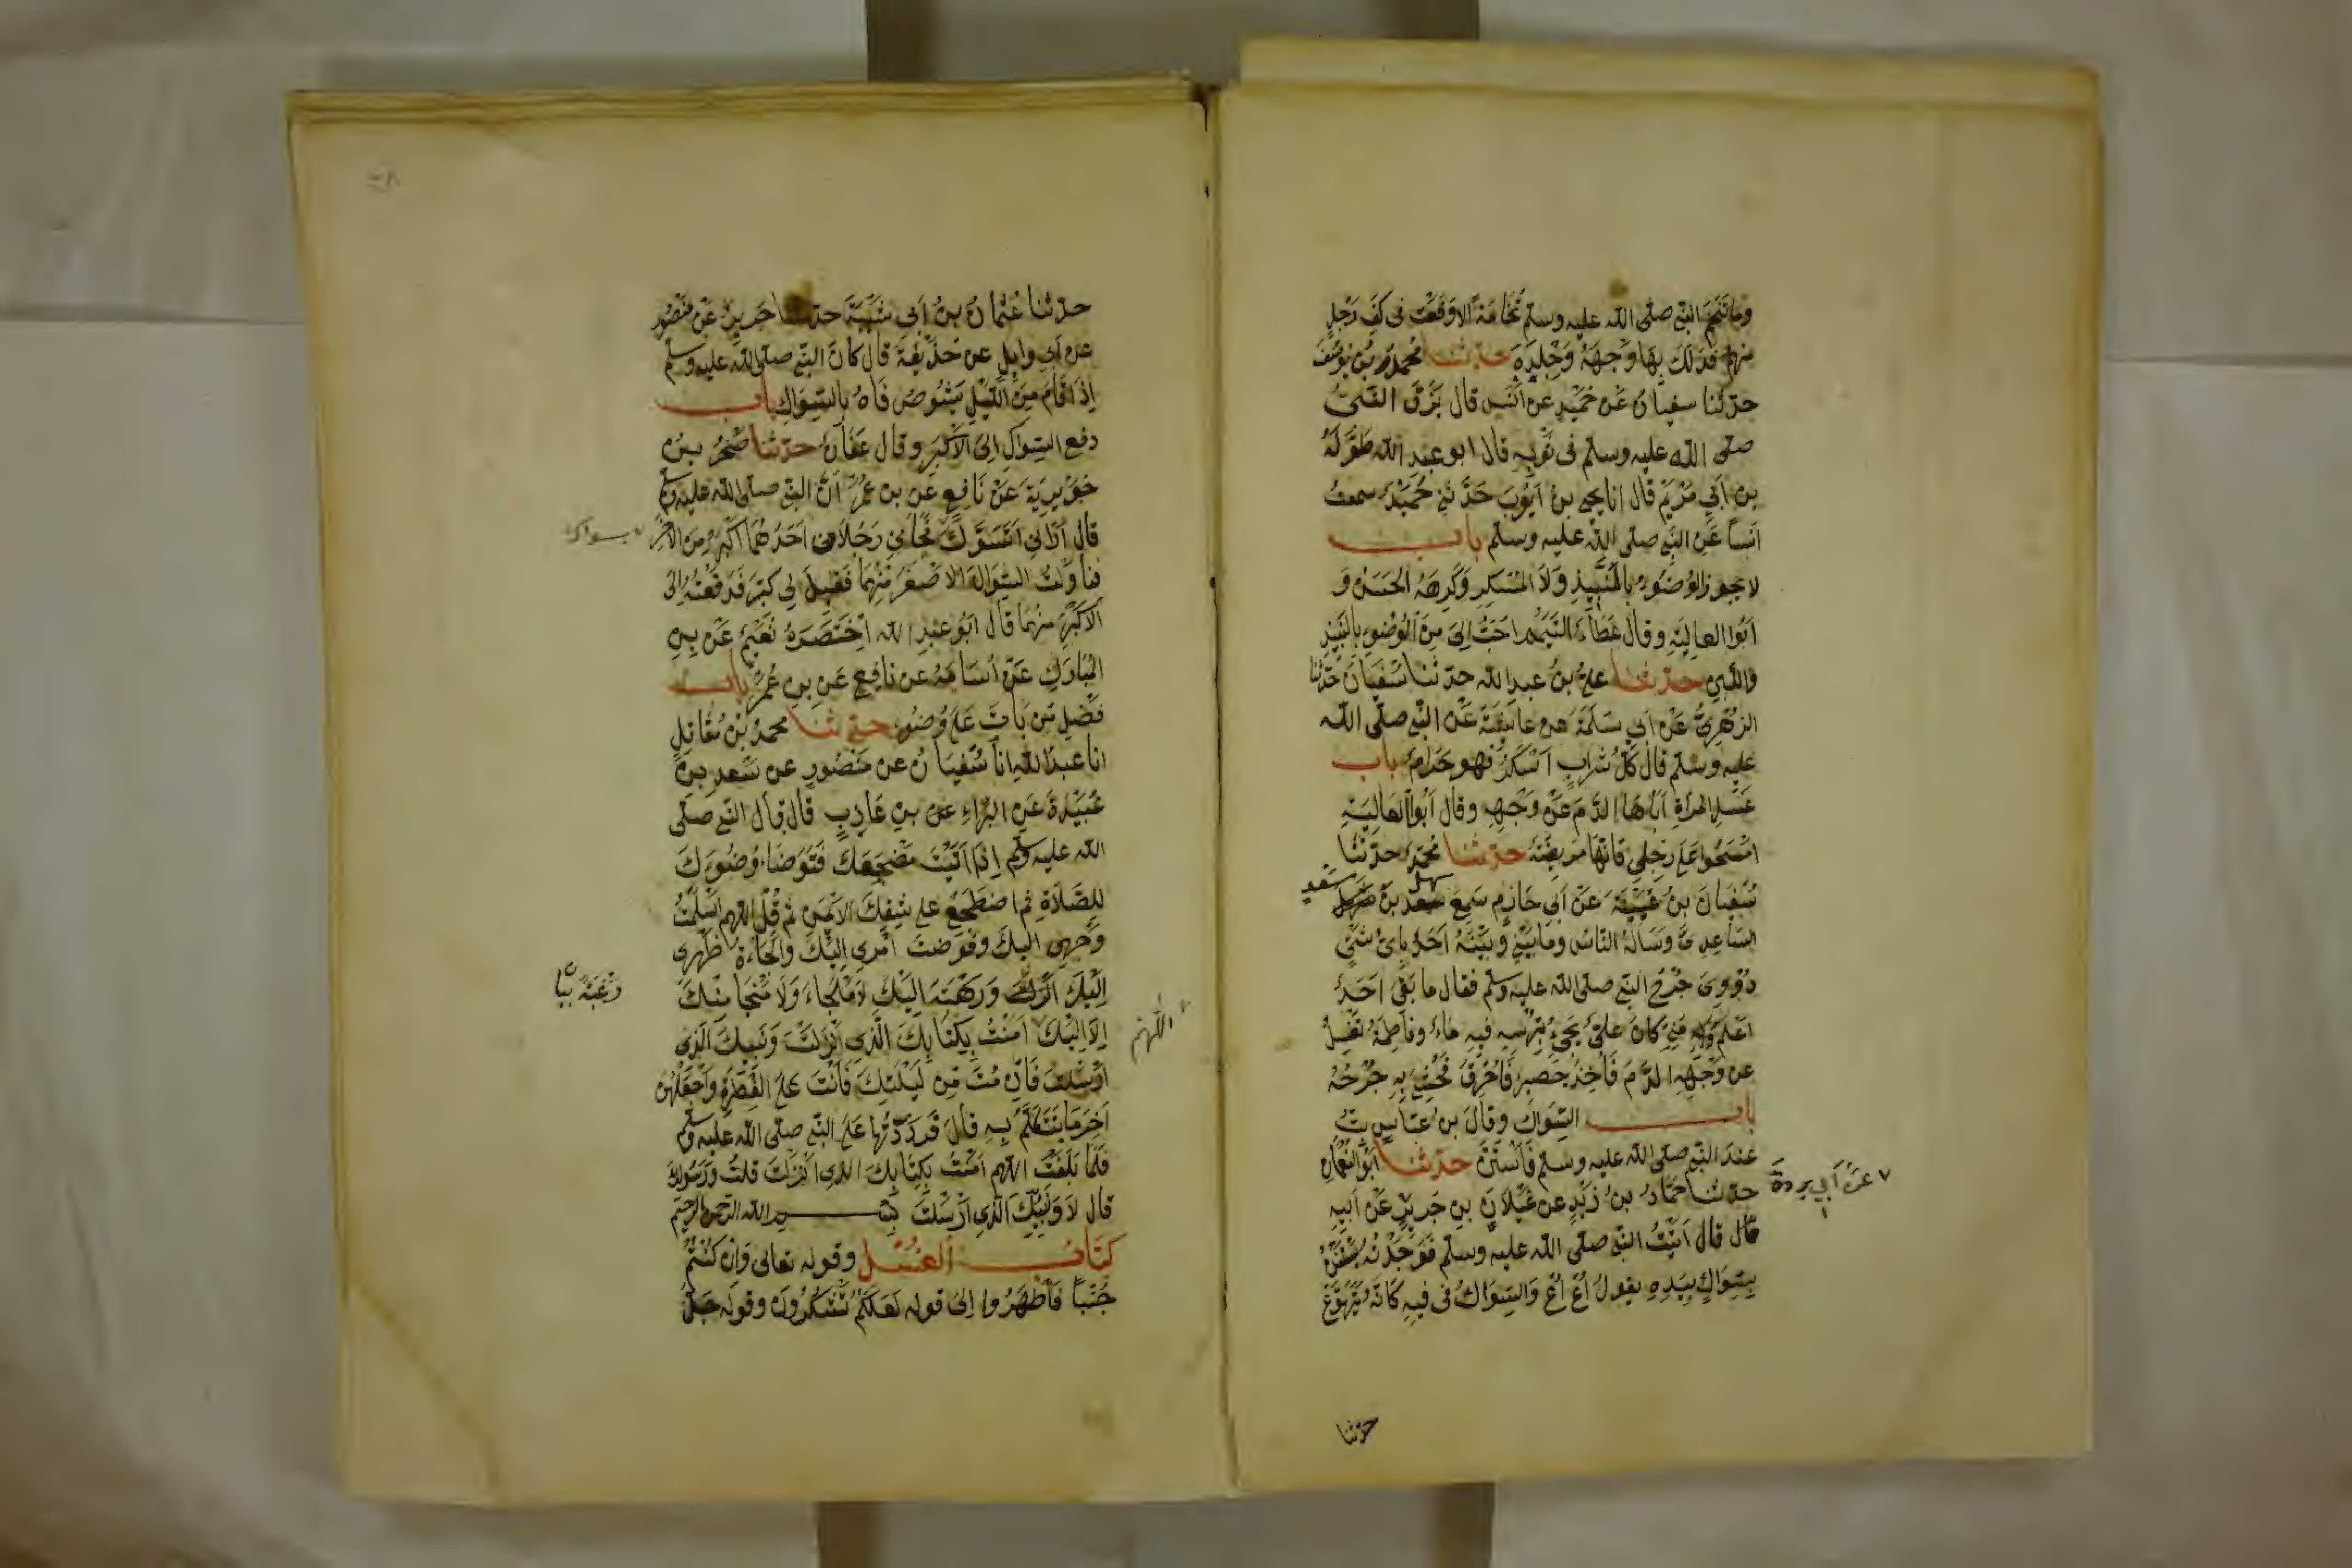 وما تنخم النبي صلى الله عليه وسلم نخامة الا وقعت فى كف رجل
منهم فدلك بها وجهه وجلده حدثنا محمد بن يوسف
حدثنا سفيان عن حميد عن انس قال بزق النبي
صلى الله عليه وسلم فى ثوبه قال ابو عبد الله طوله
بن ابي مريم قال انا يحيى بن ايوب حدثني حميد سمعت
انسا عن النبي صلى الله عليه وسلم باب
لا يجوز الوضوء بالنبيذ ولا المسكر وكرهه الحسن و
ابوا العالية وقال عطاء التيمم احب الي من الوضوء بالنبيذ
واللبن حدثنا علي بن عبد الله حدثنا سفيان حدثنا
الزهري عن ابي سلمة عن عايشة عن النبي صلى الله
عليه وسلم قال كل شراب اسكر فهو حرام باب
غسل المراة اباها الدم عن وجهه وقال ابوا العالية
امسحوا على رجلي فانها مريضة حدثنا محمد حدثنا
سفيان بن عيينة عن ابي حازم سمع سهل بن سعد
الساعدي وساله الناس وما بيني وبينه احد باي شئ
دووي جرح النبي صلى الله عليه وسلم فقال ما بقي احد
اعلم به مني كان علي يجيء بترسه فيه ماء وفاطمة تغسل
عن وجهه الدم فاخذ حصير فاحرق فحشي به جرحه
باب السواك وقال بن عباس بت
عند النبي صلى الله عليه وسلم فاستن حدثنا ابو النعمان
حدثنا حماد بن زيد عن غيلان بن جرير عن ابيه
عن ابي بردة
قال قال اتيت النبي صلى الله عليه وسلم فوجدته يستن
بسواك بيده يقول اع اع والسواك فى فيه كانه يتهوع
حدثنا
حدثنا عثمان بن ابي شيبة حدثنا جرير عن منصور
عن ابي وايل عن حذيفة قال كان النبي صلى الله عليه وسلم
اذا قام من الليل يشوص فاه بالسواك باب
دفع السواك الى الاكبر وقال عفان حدثنا صخر بن
جويرية عن نافع عن بن عمر ان النبي صلى الله عليه وسلم
قال اراني اتسوك فجاءني رجلان احدهما اكبر من الاخر
بسواك
فناولت السواك الاصغر منهما فقيل لي كبر فدفعته الى
الاكبر منهما قال ابو عبد الله اختصره نعيم عن بن
المبارك عن اسامة عن نافع عن بن عمر باب
فضل من بات على وضوء حدثنا محمد بن مقاتل
انا عبد الله انا سفيان عن منصور عن سعد بن
عبيدة عن البراء عن بن عازب قال قال النبي صلى
الله عليه وسلم اذا اتيت مضجعك فتوضا وضوءك
للصلاة ثم اضطجع على شقك الايمن ثم قل اللهم اسلمت
وجهي اليك وفوضت امري اليك والجاءت ظهري
اليك ورهبة اليك لا ملجاء ولا منجا منك
رغبة
الا اليك امنت بكتابك الذي انزلت ونبيك الذي
اللهم
ارسلت فان مت من ليلتك فانت على الفطرة واجعلهن
اخر ما تتكلم به قال فرددتها على النبي صلى الله عليه وسلم
فلما بلغت اللهم امنت بكتابك الذي انزلت قلت ورسولك
قال لا ونبيك الذي ارسلت بسم الله الرحمن الرحيم
كتاب الغسل وقوله تعالى وان كنتم
جنبا فاطهروا الى قوله لعلكم تشكرون وقوله جل